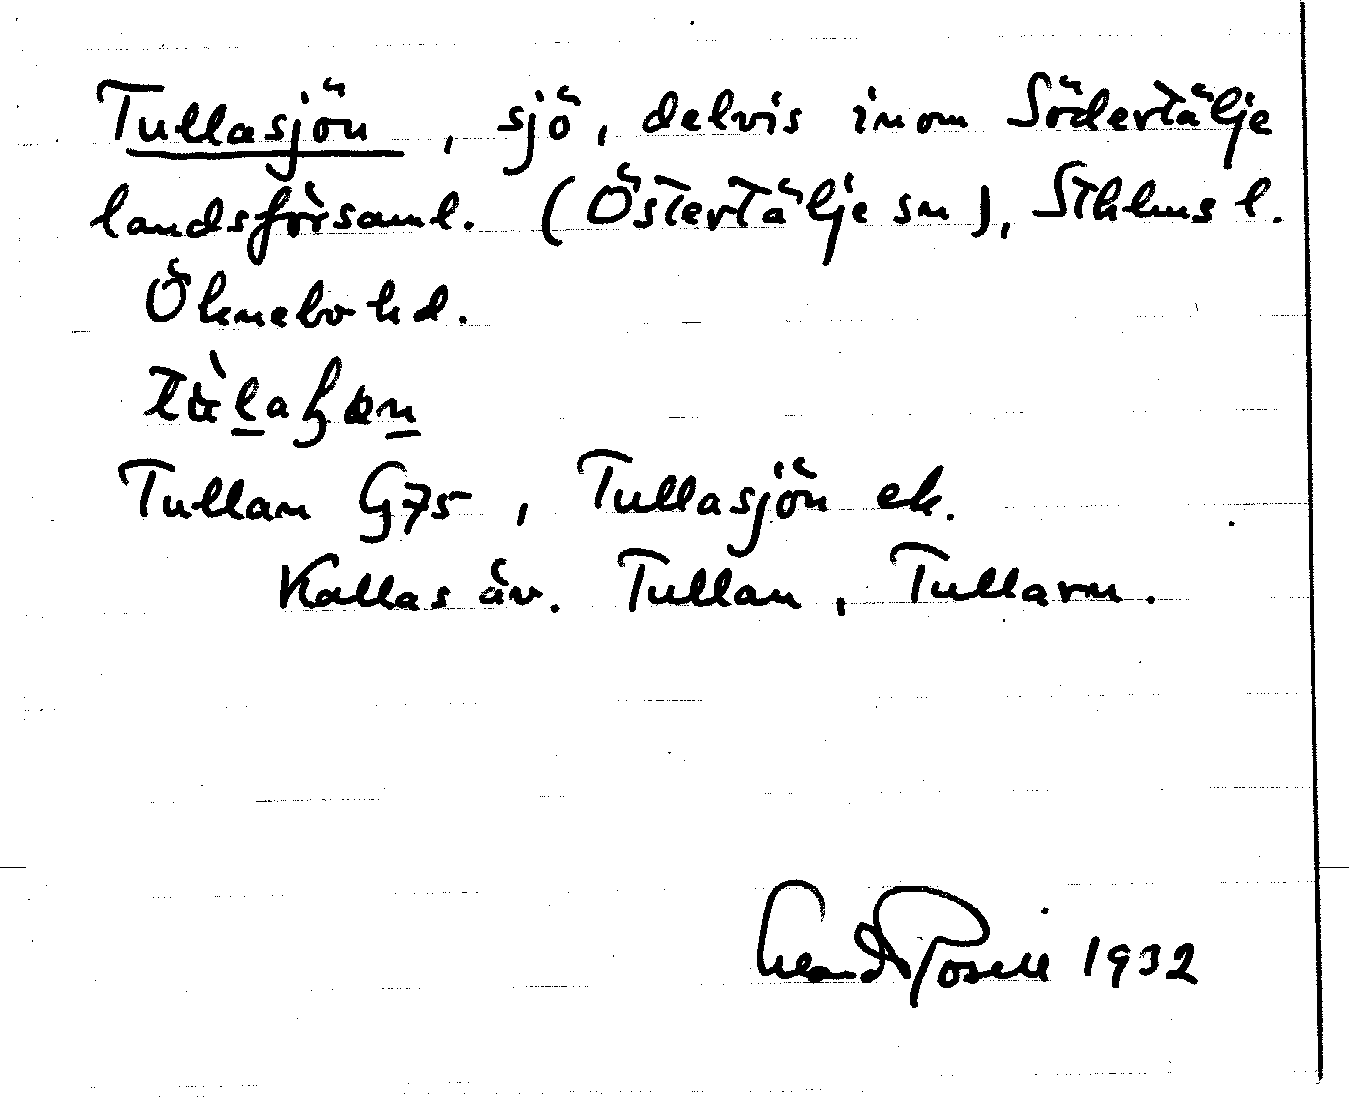 Tullasjön, sjö, delvis inom Södertälje
landsförsaml. (Östertälje sn), Sthlms l.
Öknebo hd.
Tullan G75, Tullasjön ek.
Kallas äv. Tullan, Tullarn.
1932